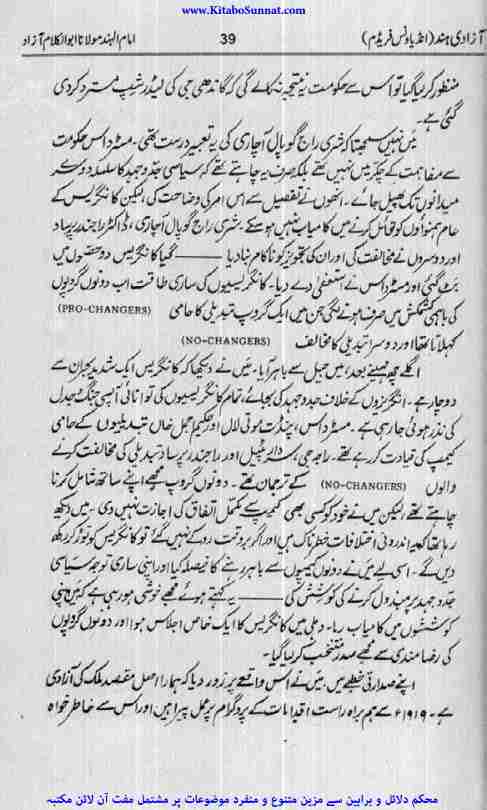 www.KitaboSunnat.com
آزادی ہند (انڈیا ونس فریڈم) 39 امام الہند مولانا ابوالکلام آزاد
منظور کر لیا گیا تو اس سے حکومت یہ نتیجہ نکالے گی کہ گاندھی جی کی لیڈرشیپ مسترد کر دی
گئی ہے۔
میں نہیں سمجھتا کہ شری راج گوپال آچاری کی یہ تعبیر درست تھی۔ مسٹر داس حکومت
سے مفاہمت کے چکر میں نہیں تھے بلکہ صرف یہ چاہتے تھے کہ سیاسی جدوجہد کا سلسلہ دوسرے
میدانوں تک پھیل جائے۔ انھوں نے تفصیل سے اس امر کی وضاحت کی، لیکن کانگریس کے
عام ہمنواؤں کو قائل کرنے میں کامیاب نہیں ہوسکے۔ شری راج گوپال آچاری، ڈاکٹر راجندر پرساد
اور دوسروں نے مخالفت کی اور ان کی تجویز کو ناکام بنا دیا ——— گیا کانگریس دو حصّوں میں
بٹ گئی اور مسٹر داس نے استعفیٰ دے دیا۔ کانگریسیوں کی ساری طاقت اب دونوں گروپوں
کی باہمی کشمکش میں صرف ہونے لگی جن میں ایک گروپ تبدیلی کا حامی (PRO-CHANGERS)
کہلاتا تھا اور دوسرا تبدیلی کا مخالف (NO-CHANGERS)
اگلے چھ مہینے بعد، میں جیل سے باہر آیا۔ میں نے دیکھا کہ کانگریس ایک شدید بحران سے
دوچار ہے۔ انگریزوں کے خلاف جدوجہد کی بجائے، تمام کانگریسیوں کی توانائی آپسی جنگ و جدل
کی نذر ہوئی جا رہی ہے۔ مسٹر داس، پنڈت موتی لال اور حکیم اجمل خاں تبدیلیوں کے حامی
کیمپ کی قیادت کر رہے تھے۔ راجہ جی، سردار پٹیل اور راجندر پرساد تبدیلی کی مخالفت کرنے
والوں (NO-CHANGERS) کے ترجمان تھے۔ دونوں گروپ مجھے اپنے ساتھ شامل کرنا
چاہتے تھے لیکن میں نے خود کو کسی بھی کیمپ سے مکمل اتفاق کی اجازت نہیں دی۔ میں دیکھ
رہا تھا کہ یہ اندرونی اختلافات خطرناک ہیں اور اگر بروقت روکے نہیں گئے تو کانگریس کو توڑ کر رکھ
دیں گے۔ اسی لیے میں نے دونوں کیمپوں سے باہر رہنے کا فیصلہ کیا اور اپنی ساری توجہ سیاسی
جدوجہد پر مبذول کرنے کی کوشش کی ——— یہ کہتے ہوئے مجھے خوشی ہو رہی ہے کہ میں اپنی
کوششوں میں کامیاب رہا۔ دہلی میں کانگریس کا ایک خاص اجلاس ہوا اور دونوں گروپوں
کی رضامندی سے مجھے صدر منتخب کر لیا گیا۔
اپنے صدارتی خطبے میں، میں نے اس واقعے پر زور دیا کہ ہمارا اصل مقصد ملک کی آزادی
ہے۔ ۱۹۱۹ء سے ہم براہ راست اقدامات کے پروگرام پر عمل پیرا ہیں اور اس سے خاطر خواہ
محکم دلائل و براہین سے مزین متنوع و منفرد موضوعات پر مشتمل مفت آن لائن مکتبہ